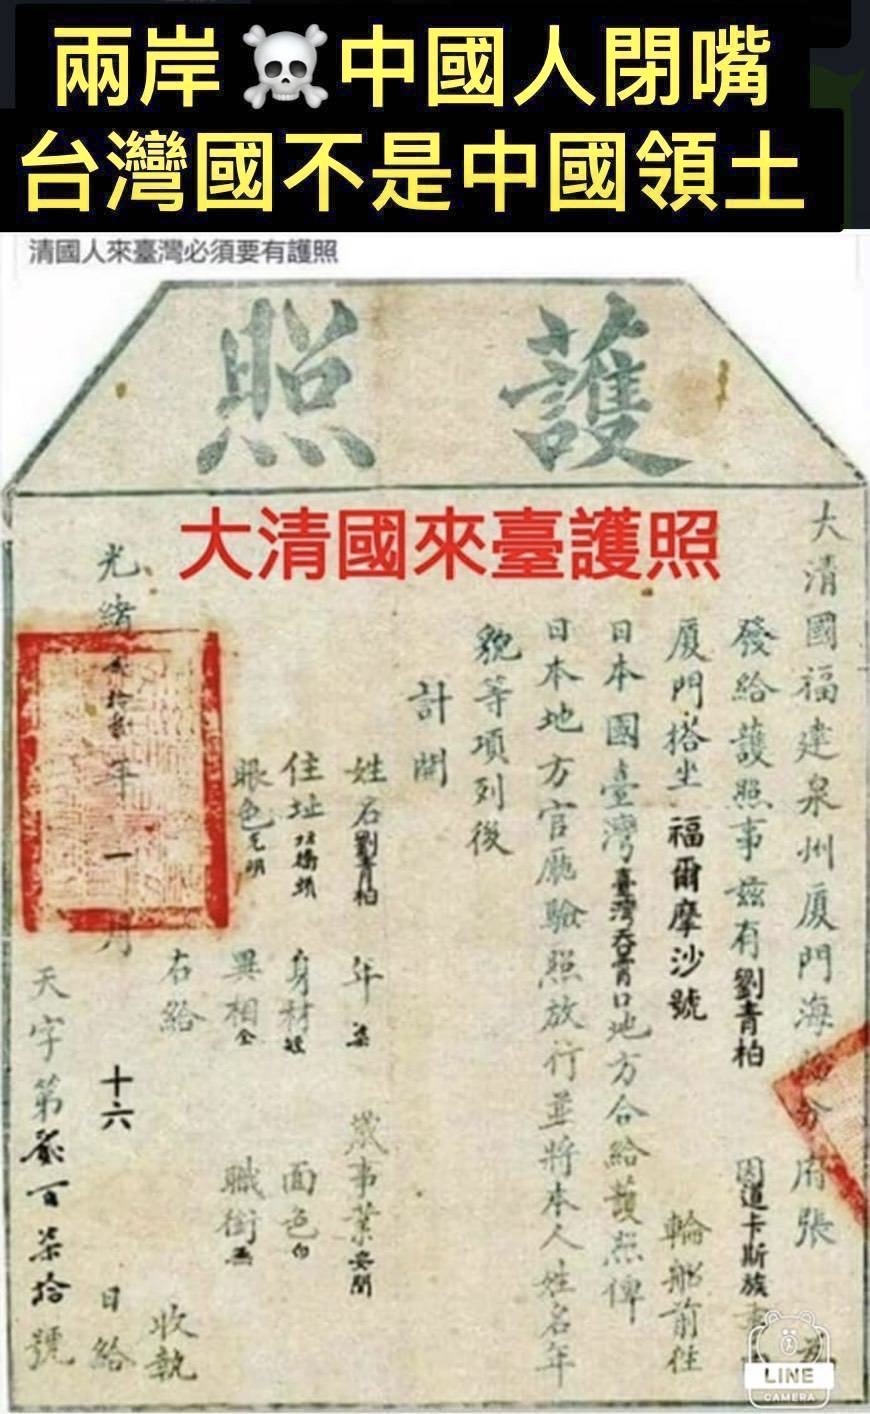 兩岸☠️中國人閉嘴
台灣國不是中國領土
清國人來臺灣必須要有護照
護照
大清國來臺護照
大清國福建泉州厦門海防分府張 為
發給護照事茲有劉青柏 因道卡斯族
厦門搭坐 福爾摩沙號 輪船前往
日本國臺灣臺灣吞霄口地方合給護照俾
日本地方官廳驗照放行並將本人姓名年
貌等項列後
計開
姓名劉青柏 年柒 歲事業
住址 身材矮 面色白
眼色光明 異相全 職銜無
右給 收執
光緒貳拾貳年十一月十六日給
天字第貳百柒拾號
LINE
CAMERA